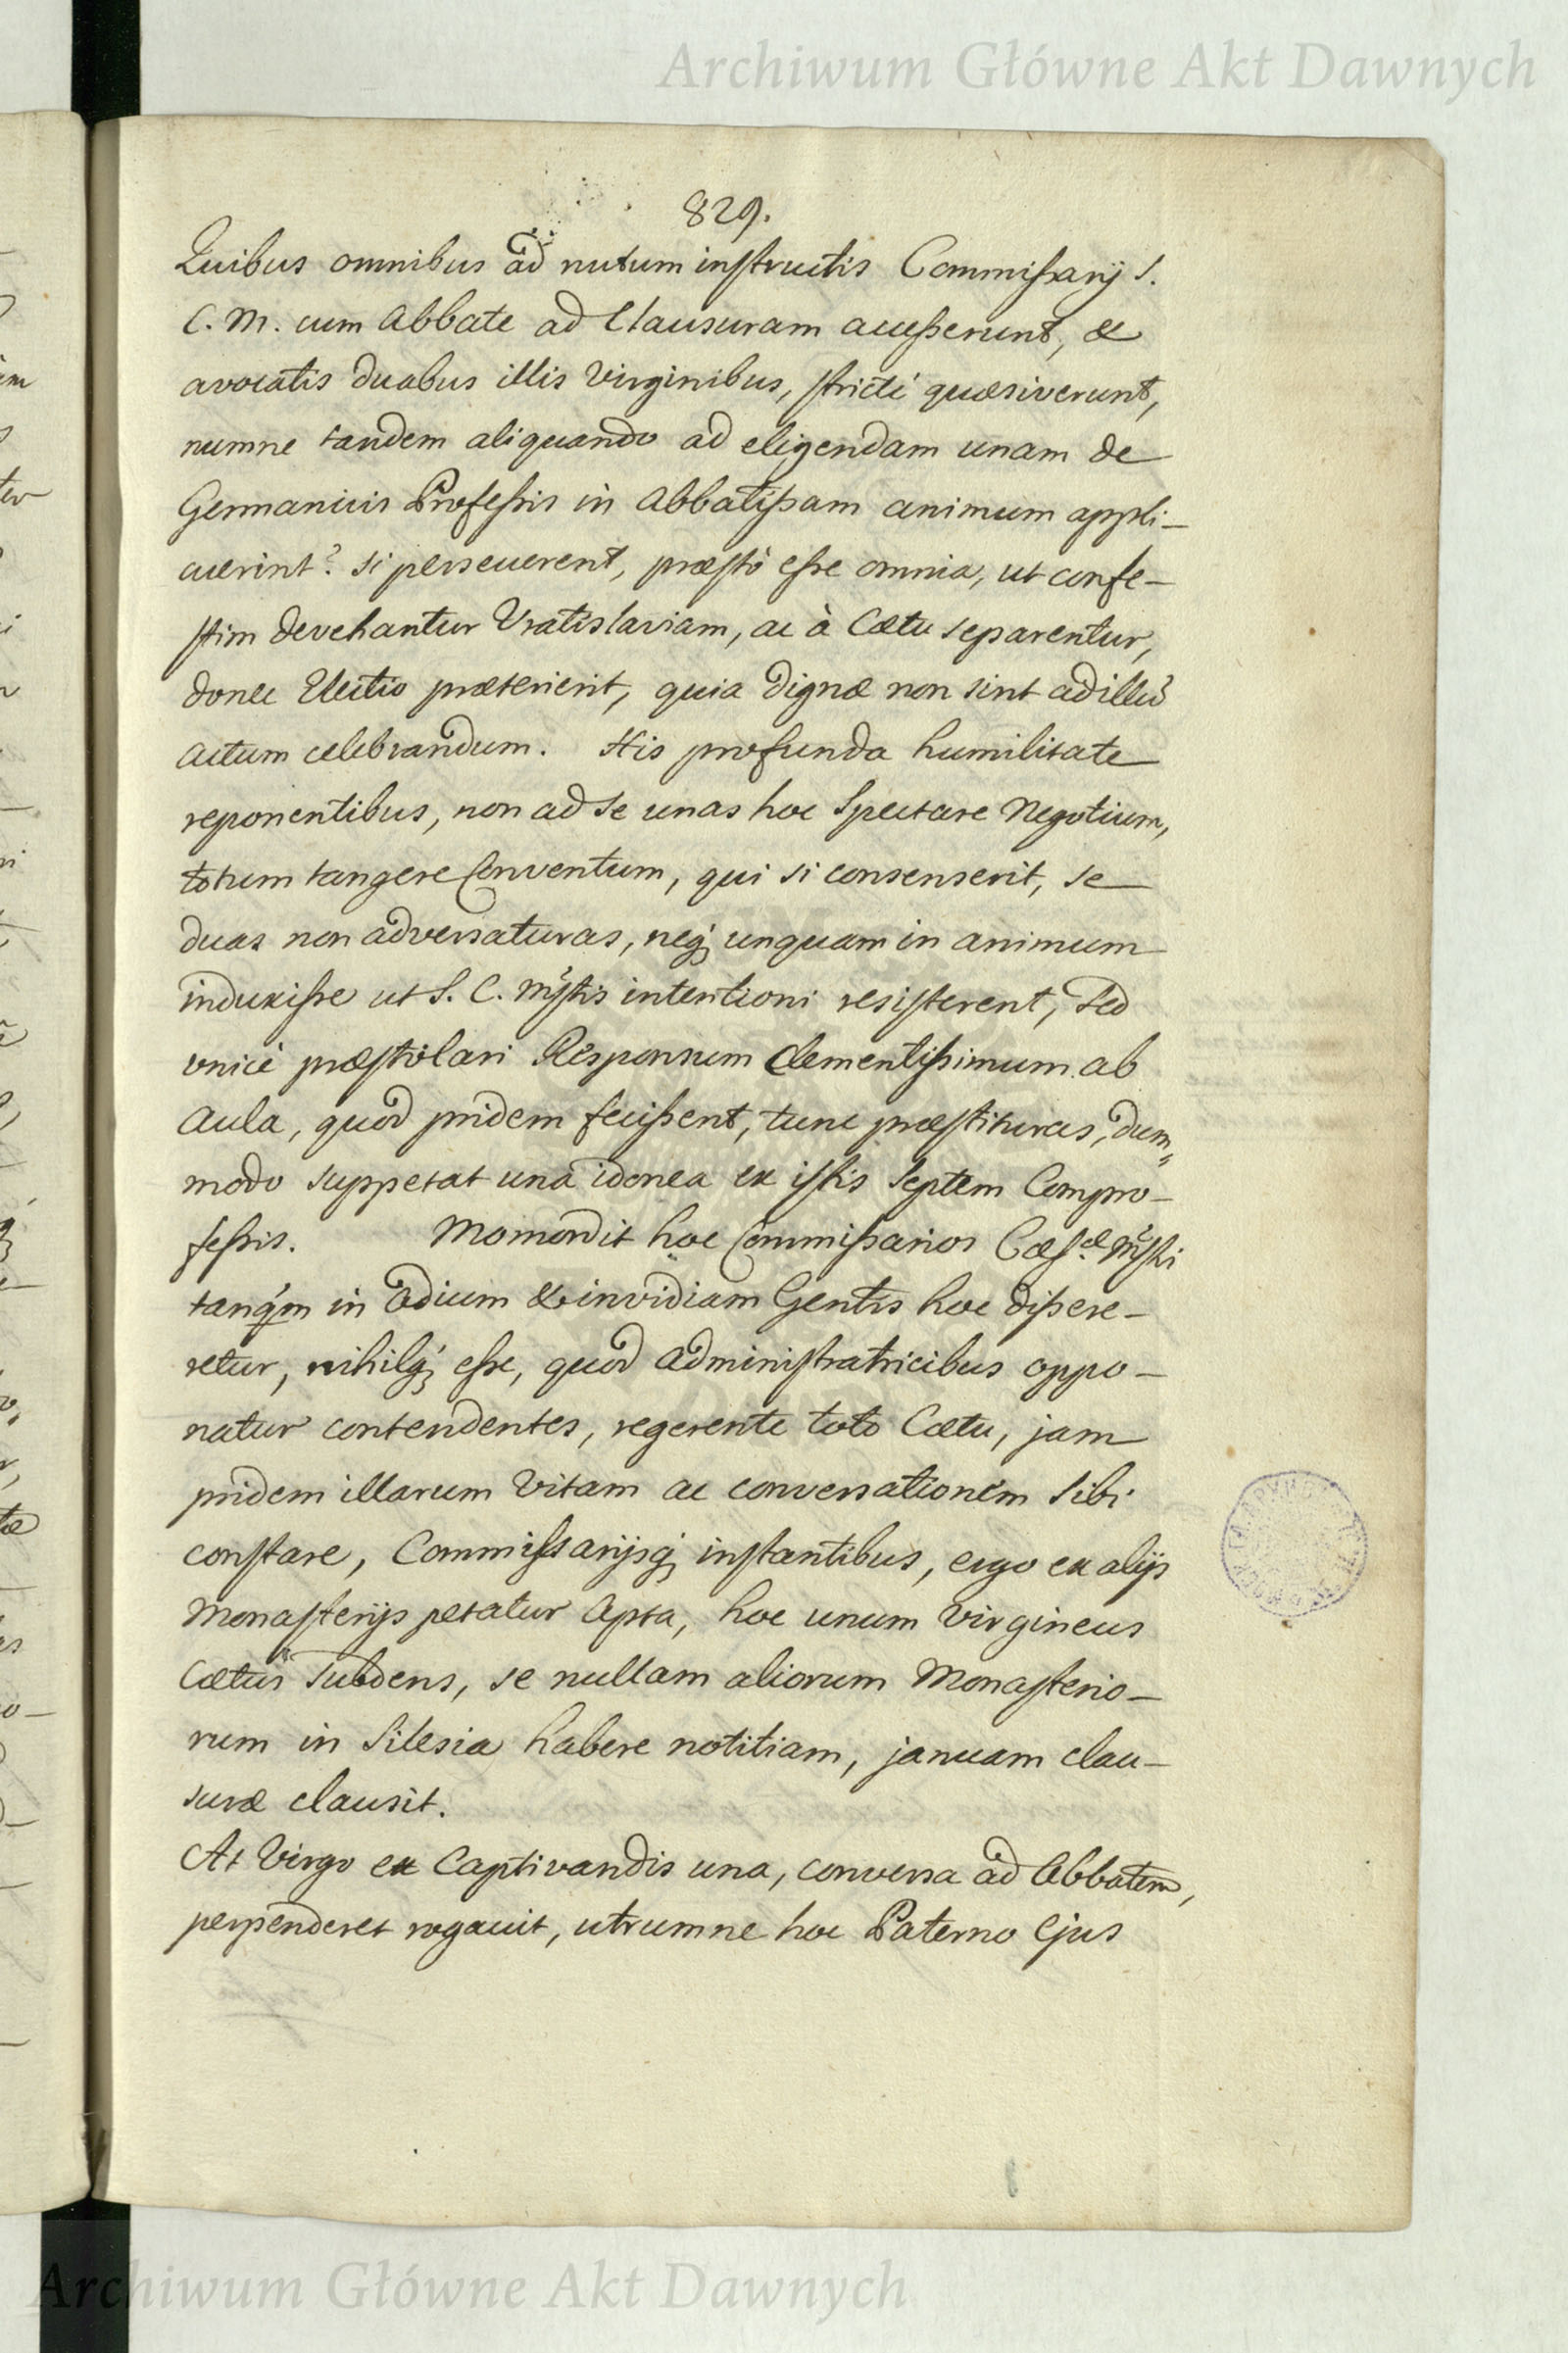 Archiwum Główne Akt Dawnych
829.
Quibus omnibus ad nutum instructis Commissarij S.
C. M. cum Abbate ad Clausuram accesserunt, &
avocatis duabus illis Virginibus, stricte quæsiverunt,
numne tandem aliquando ad eligendam unam de
Germanicis Professis in Abbatissam animum appli-
cuerint? si perseuerent, præstò esse omnia, ut confe-
stim devehantur Vratislaviam, ac à Cœtu separentur,
donec Electio præterierit, quia dignæ non sint ad illū
actum celebrandum. His profunda humilitate
reponentibus, non ad se unas hoc Spectare Negotium,
totum tangere Conventum, qui si consenserit, se
duas non adversaturas, neq; unquam in animum
induxisse ut S. C. Mṡtis intentioni resisterent, sed
vnicè præstolari Responsum Clementissimum ab
Aula, quod pridem fecissent, tunc præstituras, dum„
modo suppetat una idonea ex istis Septem Compro-
fessis. Momordit hoc Commissarios Cæsæ Mṡti
tanq́m in Odium & invidiam Gentis hoc dissere-
retur, nihilq; esse, quod Administratricibus oppo-
natur contendentes, regerente toto Cœtu, jam
pridem illarum Vitam ac conversationem Sibi
constare, Commissarijsq; instantibus, ergo ex alijs
Monasterijs petatur Apta, hoc unum Virgineus
Cœtus subdens, se nullam aliorum Monasterio-
rum in Silesia habere notitiam, januam clau-
suræ clausit.
At Virgo ex Captivandis una, conversa ad Abbatem,
perpenderet rogauit, utrumne hoc Paterno Ejus
Archiwum Główne Akt Dawnych